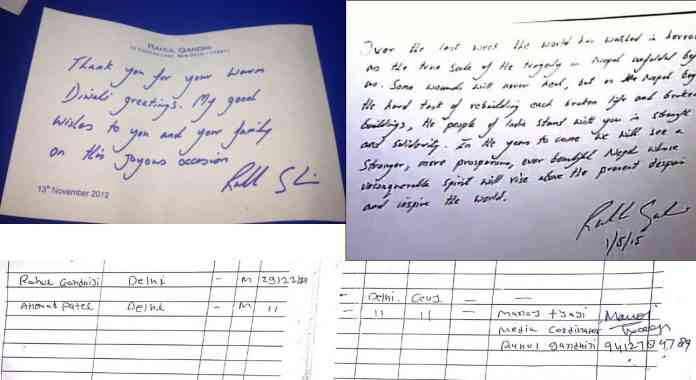 RAHUL GANDHI
Thank you for your warm
Diwali greetings. My good
wishes to you and your family
on this joyous occasion
13th November 2012
Over the last week the world has watched in horror
as the true scale of the tragedy in Nepal unfolded by
us. Some wounds will never heal, but as Nepal
the hard task of rebuilding each broken life and broken
buildings, the people of India stand with you in strength
and solidarity. In the years to come we will see a
stronger, more prosperous, ever beautiful Nepal whose
spirit will rise above the present despair
and inspire the world.
1/5/15
Rahul Gandhiji Delhi - M
Ahmad Patel Delhi - M 11
- Delhi. Cong - -
- 11 11 - Manoj tyagi Manoj
Media Cordinator Tyagi
Rahul gandhiji